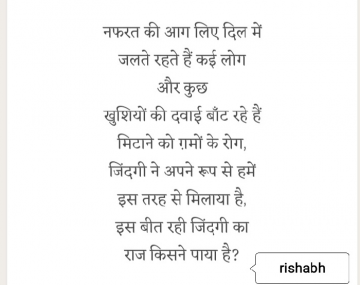 नफरत की आग लिए दिल में
जलते रहते हैं कई लोग
और कुछ
खुशियों की दवाई बाँट रहे हैं
मिटाने को ग़मों के रोग,
जिंदगी ने अपने रूप से हमें
इस तरह से मिलाया है,
इस बीत रही जिंदगी का
राज किसने पाया है?
rishabh